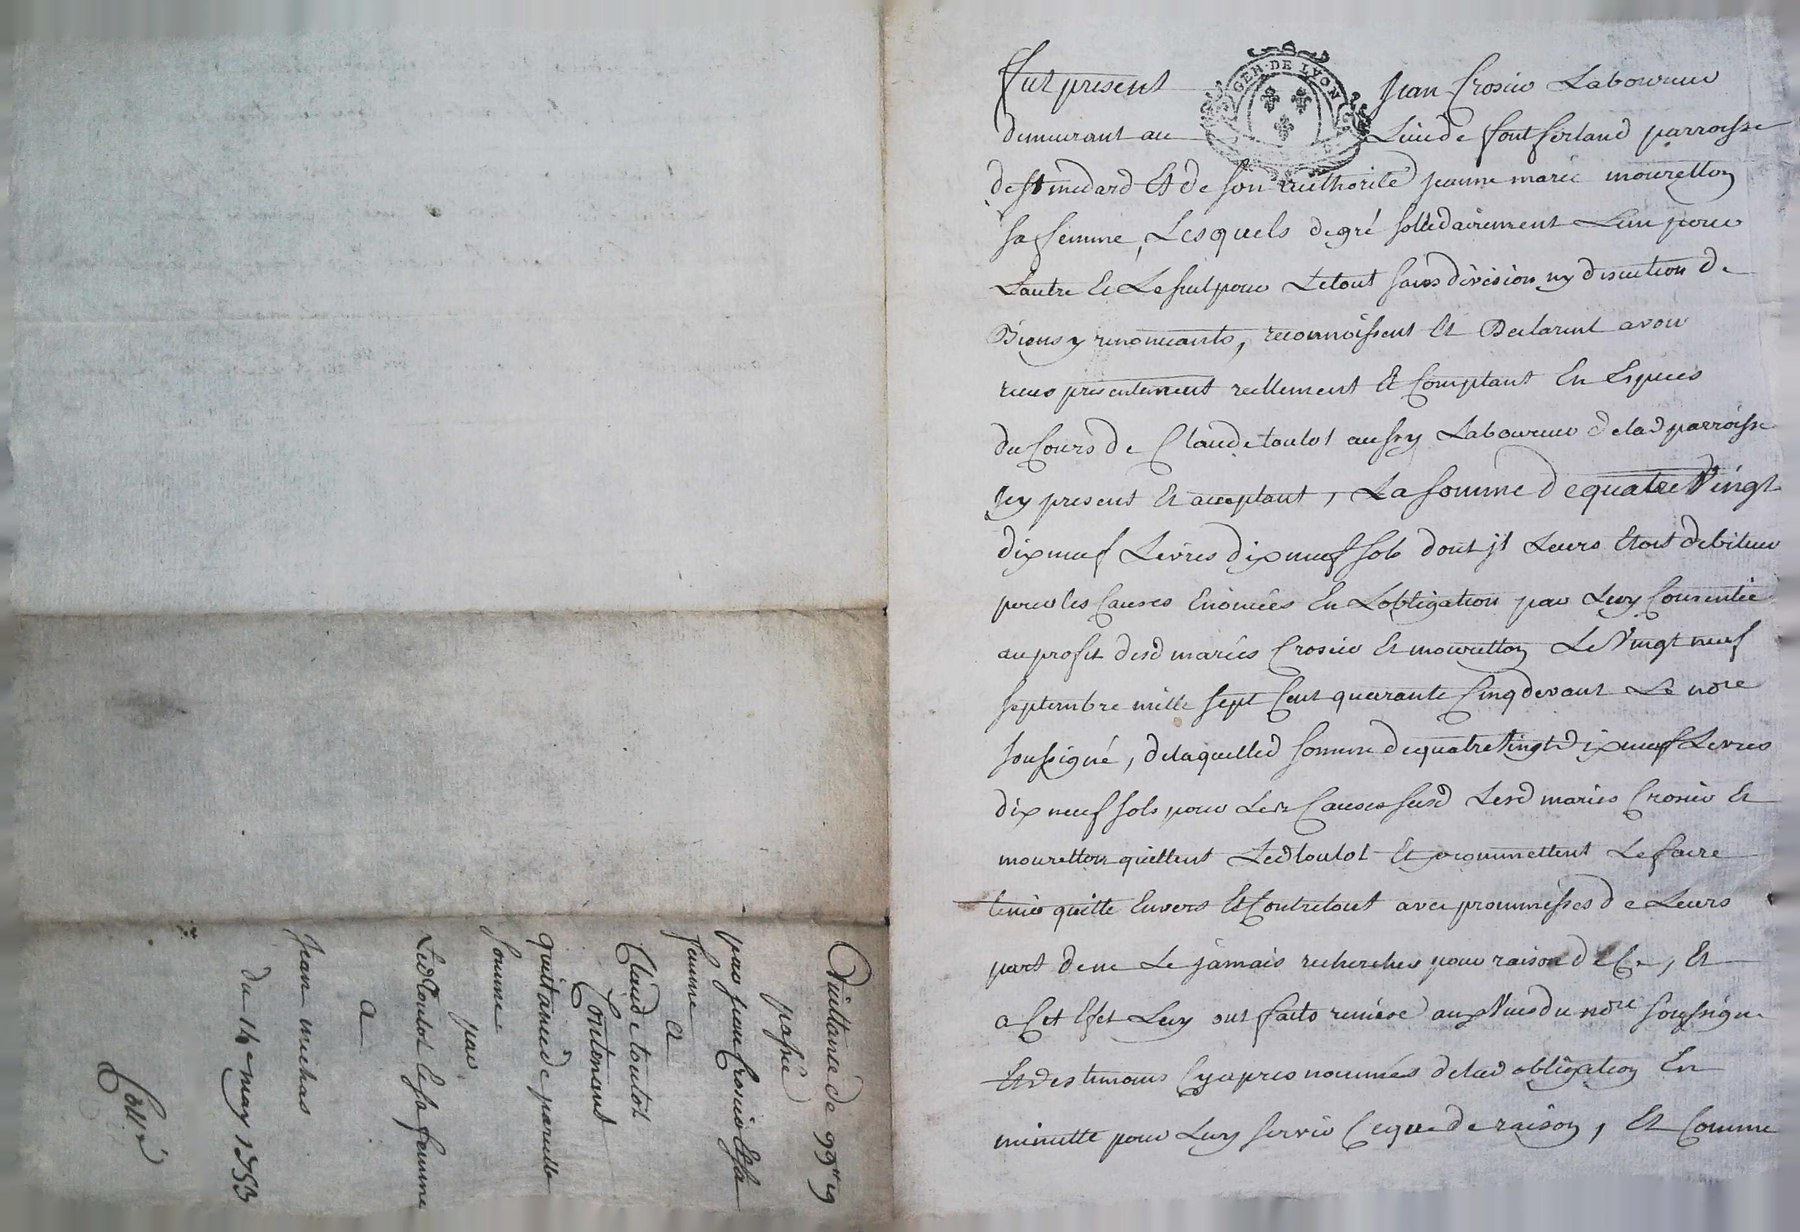 Quittance de 99ᵗᵗ 19
passée
par jean Crosier et sa
femme
a
Claude toulot
Contenant
quittance de pareille
somme
par
Led toulot et sa femme
a
Jean michas
du 14 may 1753
Coll.é
GEN. DE LYON
Fut present Jean Crosier Laboureur
demeurant au Lieu de font ferland parroisse
de st medard Et de son authorité jeanne marie mouretton
sa femme, Lesquels de gré sollidairement L'un pour
L'autre Et Le seul pour Le tout sans division ny discution de
Biens y renoncants, reconnoissent Et Declarent avoir
receu presentement reellement Et Comptant En Especes
du Cours de Claude toulot aussy Laboureur de lad parroisse
Icy present Et acceptant, La somme de quatre Vingt
dix neuf Livres dix neuf sols dont jl Leurs Etoit debiteur
pour les Causes Enoncées En L'obligation par Luy Consentie
au profit desd mariés Crosier Et mouretton Le Vingt neuf
septembre mille sept Cent quarante Cinq devant Le nore
soussigné, de laquelle d somme de quatre Vingt dix neuf Livres
dix neuf sols pour Les Causes susd Lesd mariés Crosier Et
mouretton quittent Led toulot Et promettent Le faire
tenir quitte Envers Et Contre tout avec prommesses de Leurs
part de ne Le jamais rechercher pour raison de Ce, Et
a Cet Effet Luy ont faits remise aux Vues du nore soussigné
Et des temoins Cy apres nommés de lad obligation En
minutte pour Luy servir Ce que de raison, Et Comme